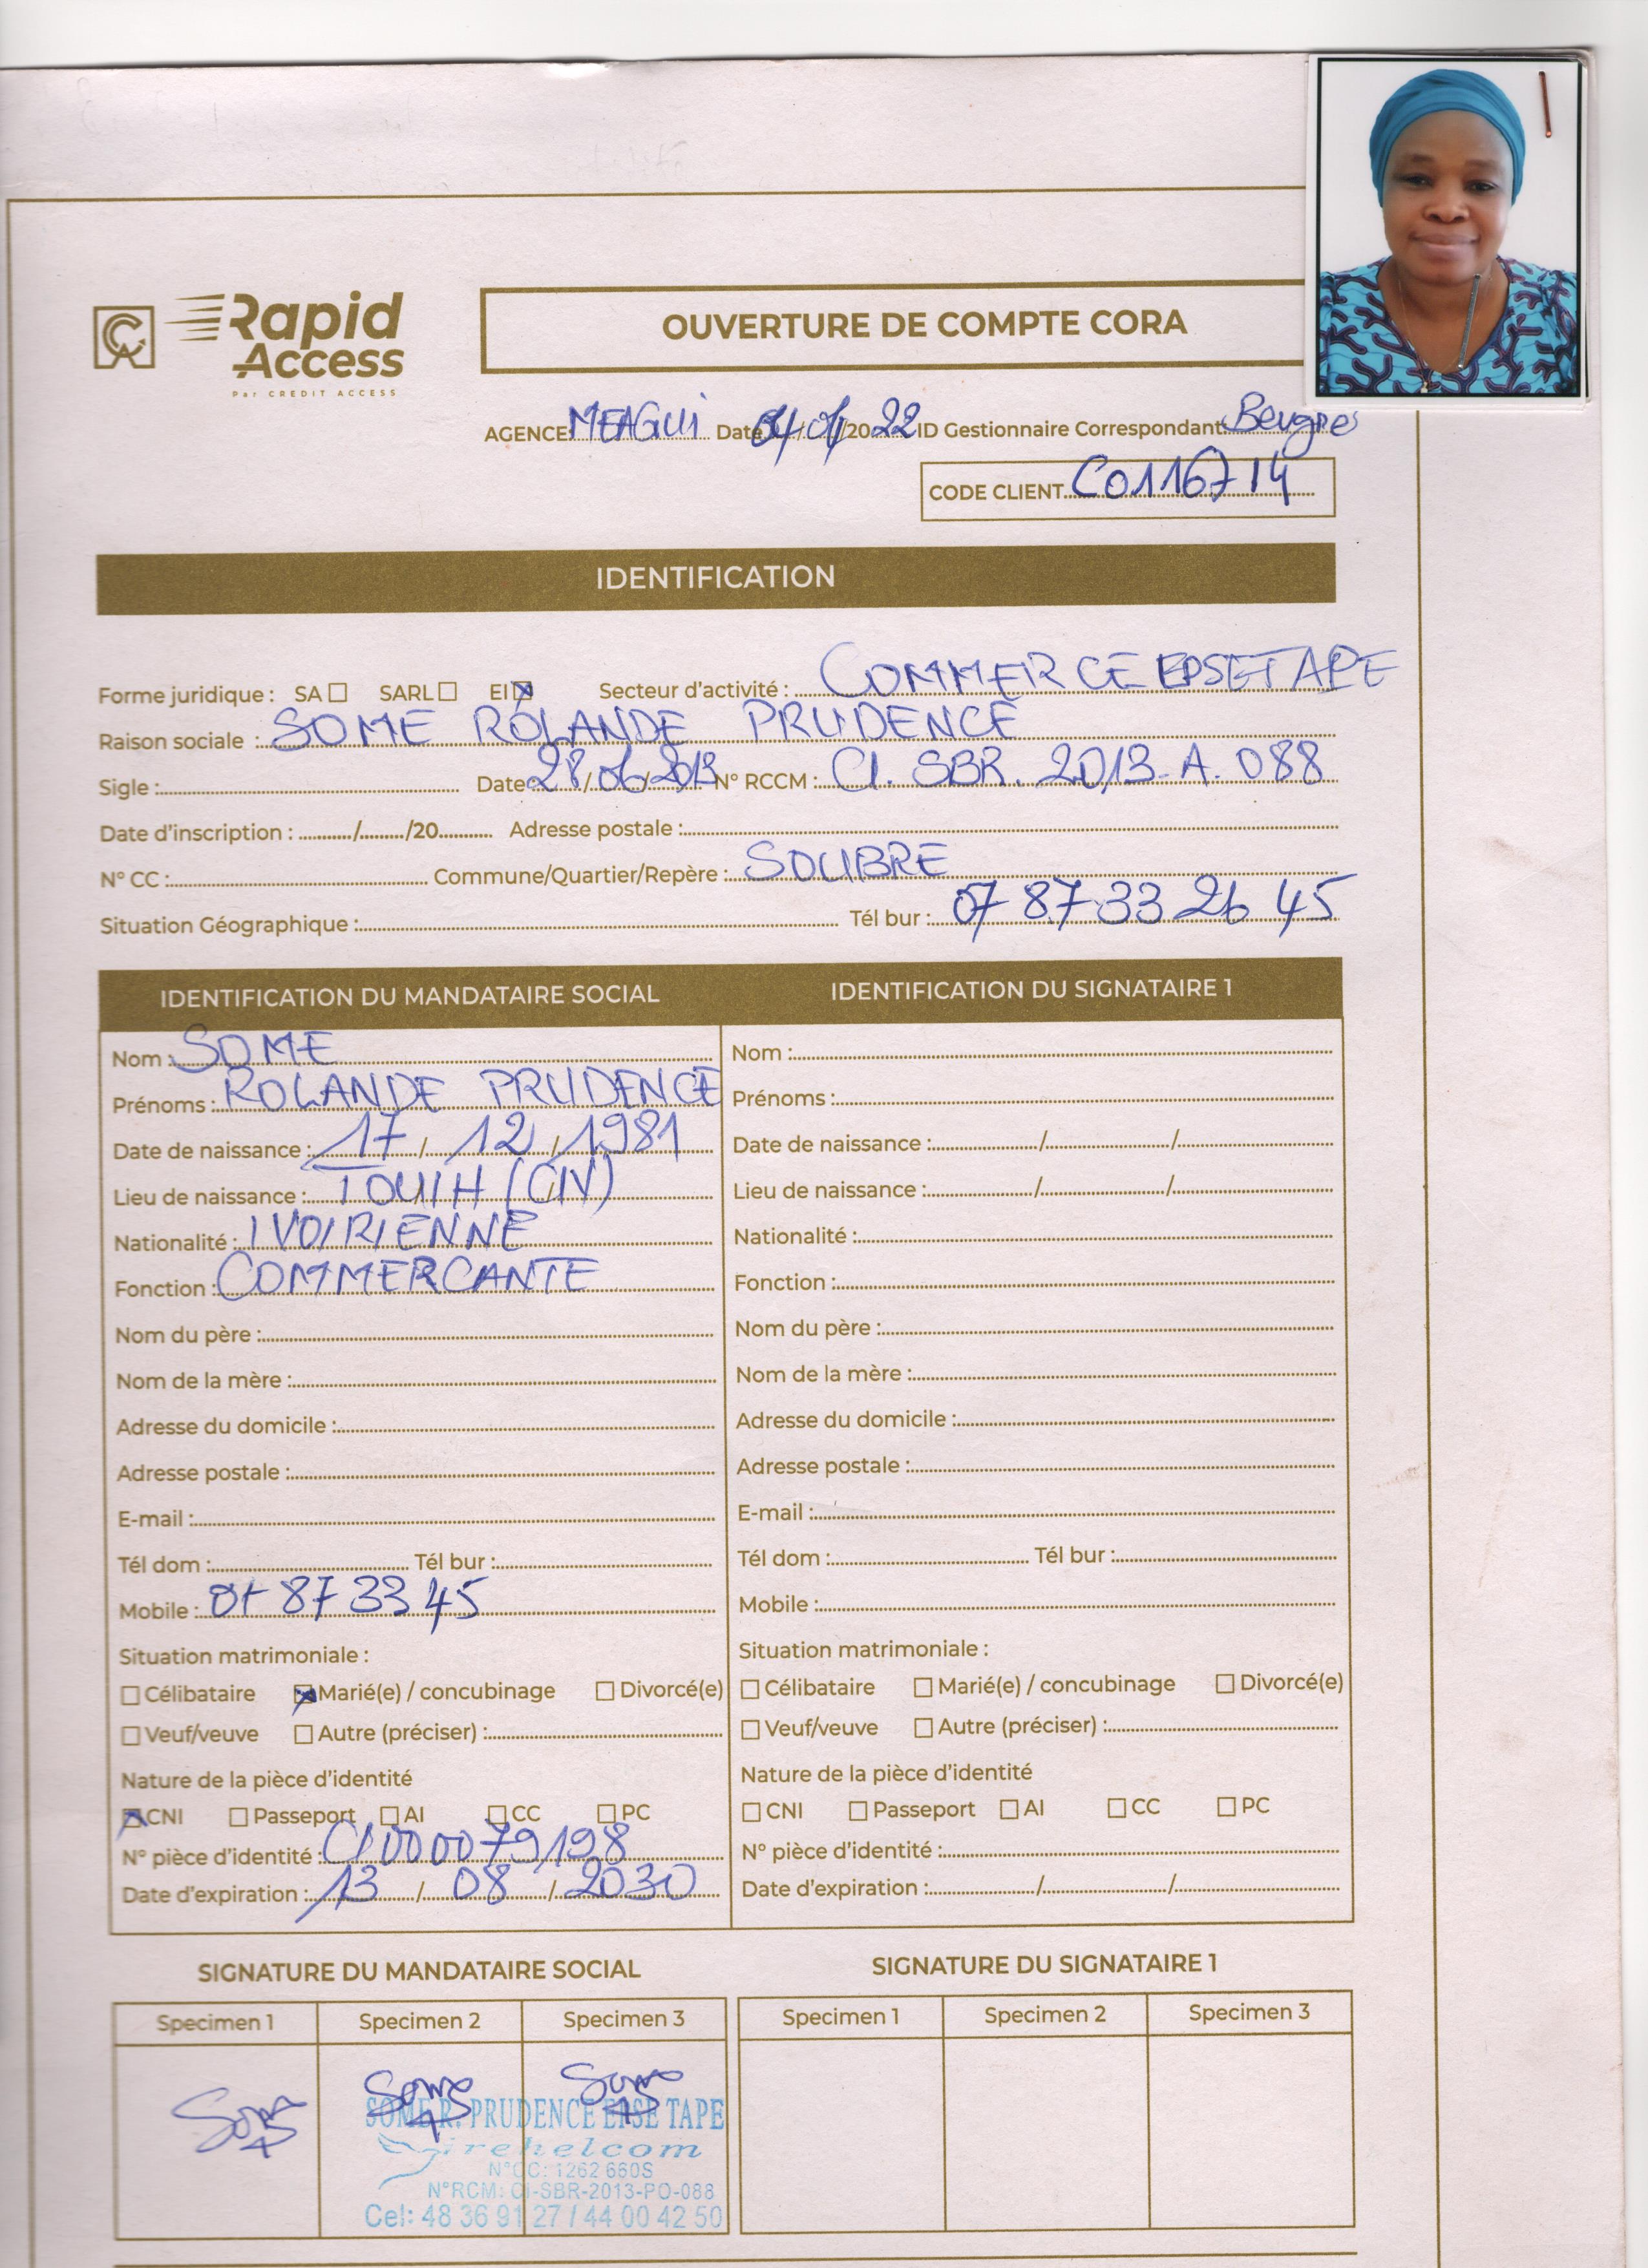 CA Rapid Access
Par CREDIT ACCESS
OUVERTURE DE COMPTE CORA
AGENCE MEAGUI Date 04/01/2022 ID Gestionnaire Correspondant: Beugré
CODE CLIENT C0116714
IDENTIFICATION
Forme juridique : SA SARL EI Secteur d'activité : COMMERCE EPSE TAPE
Raison sociale : SOME ROLANDE PRUDENCE
Sigle : Date 28/06/2013 N° RCCM : CI. SBR. 2013-A. 088
Date d'inscription : / /20 Adresse postale :
N° CC : Commune/Quartier/Repère : SOUBRE
Situation Géographique : Tél bur : 07 87 33 26 45
IDENTIFICATION DU MANDATAIRE SOCIAL
Nom : SOME
Prénoms : ROLANDE PRUDENCE
Date de naissance : 17 / 12 / 1981
Lieu de naissance : TOUIH (CIV)
Nationalité : IVOIRIENNE
Fonction : COMMERCANTE
Nom du père :
Nom de la mère :
Adresse du domicile :
Adresse postale :
E-mail :
Tél dom : Tél bur :
Mobile : 07 87 33 45
Situation matrimoniale :
Célibataire Marié(e) / concubinage Divorcé(e)
Veuf/veuve Autre (préciser) :
Nature de la pièce d'identité
CNI Passeport AI CC PC
N° pièce d'identité : CI000079198
Date d'expiration : 13 / 08 / 2030
IDENTIFICATION DU SIGNATAIRE 1
Nom :
Prénoms :
Date de naissance : / /
Lieu de naissance : / /
Nationalité :
Fonction :
Nom du père :
Nom de la mère :
Adresse du domicile :
Adresse postale :
E-mail :
Tél dom : Tél bur :
Mobile :
Situation matrimoniale :
Célibataire Marié(e) / concubinage Divorcé(e)
Veuf/veuve Autre (préciser) :
Nature de la pièce d'identité
CNI Passeport AI CC PC
N° pièce d'identité :
Date d'expiration : / /
SIGNATURE DU MANDATAIRE SOCIAL
Specimen 1 Specimen 2 Specimen 3
Some Some Some
SOME R. PRUDENCE EPSE TAPE
irehelcom
N°CC: 1262 660S
N°RCM: CI-SBR-2013-PO-088
Cel: 48 36 91 27 / 44 00 42 50
SIGNATURE DU SIGNATAIRE 1
Specimen 1 Specimen 2 Specimen 3